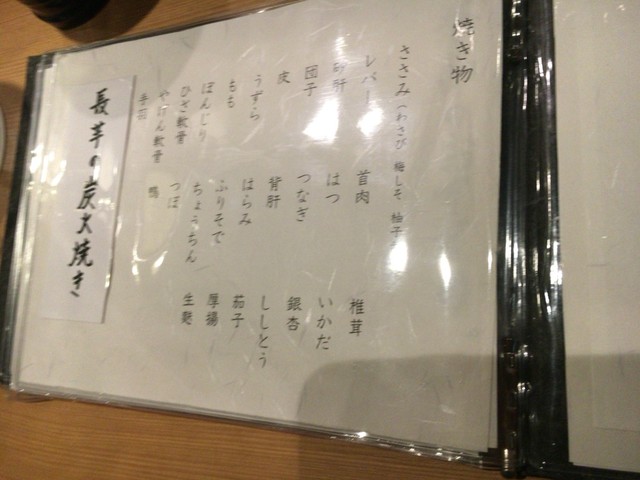 焼き物
ささみ（わさび 梅しそ 柚子
レバー
首肉
椎茸
砂肝
はつ
いかだ
団子
つなぎ
銀杏
皮
背肝
ししとう
うずら
はらみ
茄子
もも
ふりそで
厚揚
ぼんじり
ちょうちん
生麩
ひざ軟骨
つぼ
やげん軟骨
鴨
手羽
長芋の炭火焼き